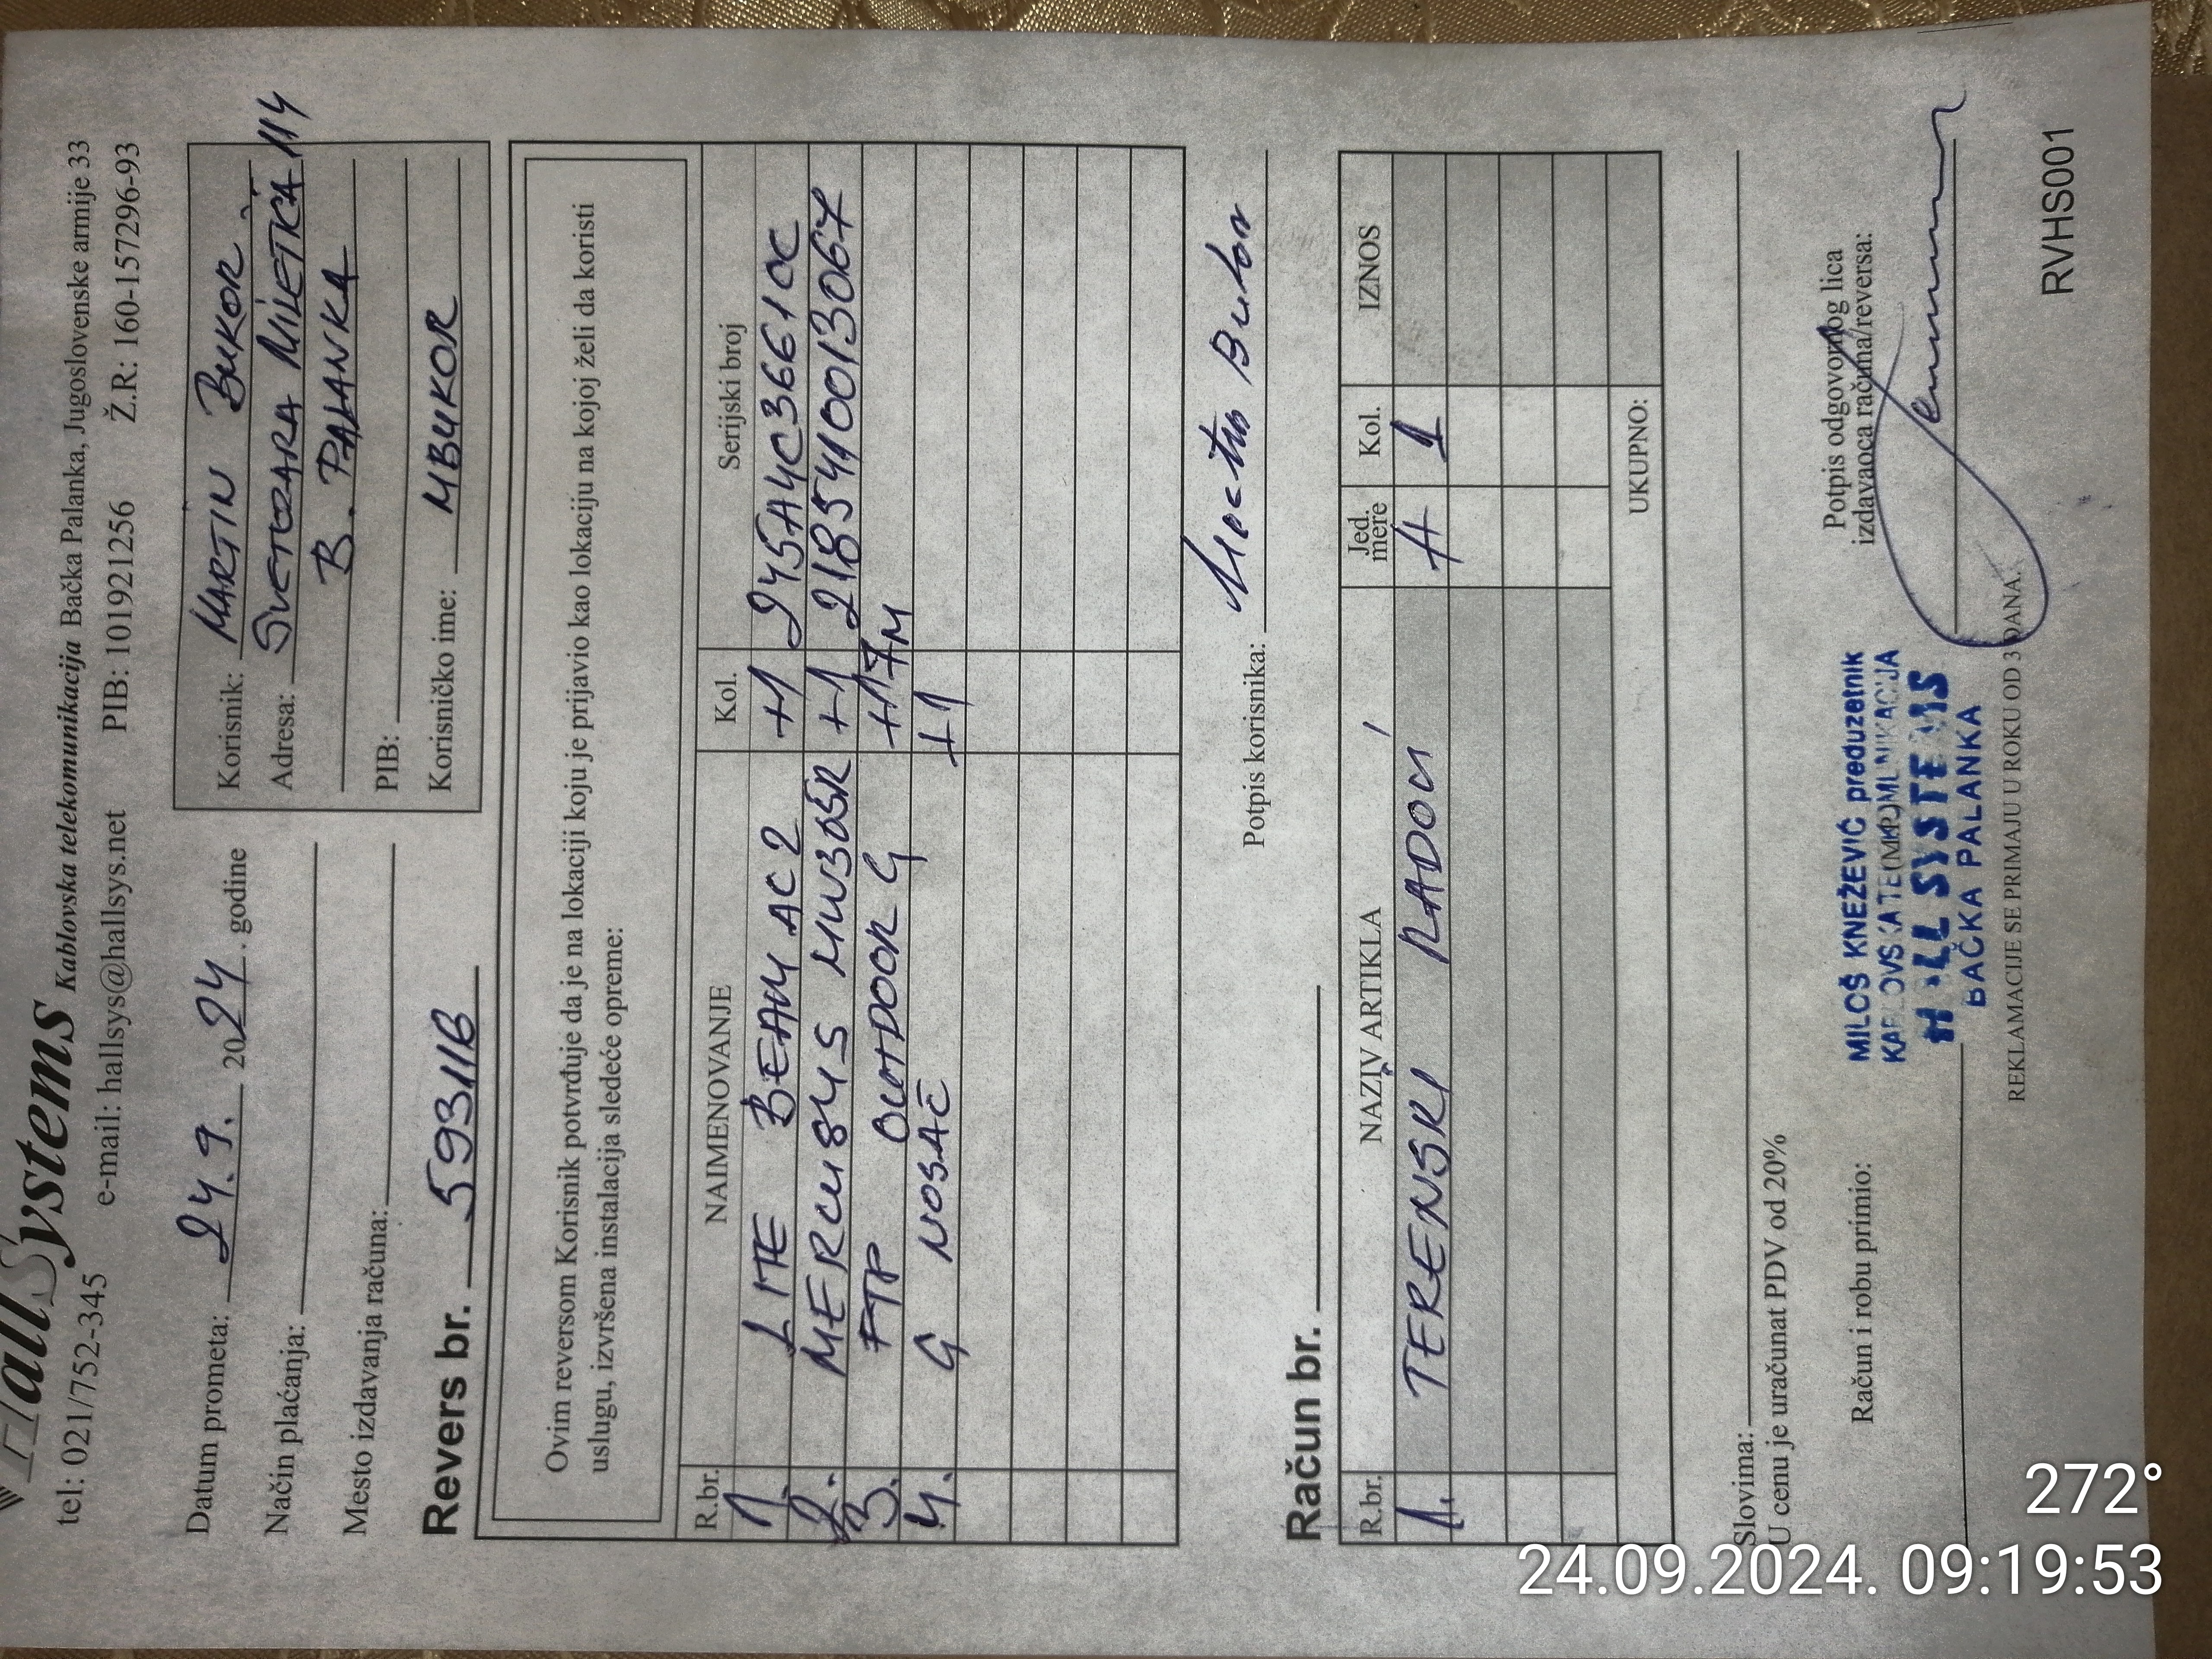 HallSystems Kablovska telekomunikacija Bačka Palanka, Jugoslovenske armije 33
tel: 021/752-345 e-mail: hallsys@hallsys.net PIB: 101921256 Ž.R: 160-157296-93
Datum prometa: 24.9. 2024. godine
Način plaćanja:
Mesto izdavanja računa:
Korisnik: MARTIN BUKOR
Adresa: SVETOZARA MILETIĆA 114
B. PALANKA
PIB:
Korisničko ime: MBUKOR
Revers br. 5931/B
Ovim reversom Korisnik potvrđuje da je na lokaciji koju je prijavio kao lokaciju na kojoj želi da koristi
uslugu, izvršena instalacija sledeće opreme:
R.br. NAIMENOVANJE Kol. Serijski broj
1. LITE BEAM AC2 +1 245A4C36610C
2. MERCUSYS MW305R +1 2185410013067
3. FTP OUTDOOR G +17M
4. G NOSAČ +1
Potpis korisnika: Martin Bukor
Račun br.
R.br. NAZIV ARTIKLA Jed. mere Kol. IZNOS
1. TERENSKI RADOVI H 1
UKUPNO:
Slovima:
U cenu je uračunat PDV od 20%
Račun i robu primio:
Potpis odgovornog lica
izdavaoca računa/reversa:
MILOŠ KNEŽEVIĆ preduzetnik
KABLOVSKA TELEKOMUNIKACIJA
HALL SYSTEMS
BAČKA PALANKA
REKLAMACIJE SE PRIMAJU U ROKU OD 3 DANA.
RVHS001
272°
24.09.2024. 09:19:53